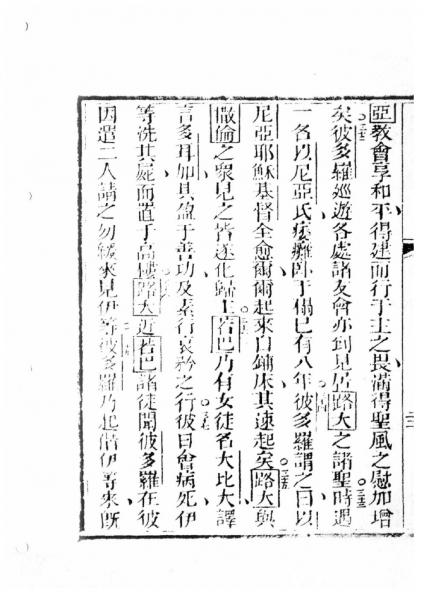 亞教會享和平得建而行于主之畏滿得聖風之慰加增
矣彼多羅巡遊各處諸友會亦到見居路大之諸聖時遇
一名以尼亞氏痿癱臥于榻已有八年彼多羅謂之曰以
尼亞耶穌基督全愈爾爾起來自鋪床其速起矣路大與
撒倫之眾見之皆遂化歸主若巴乃有女徒名大比大譯
言多耳加其盈于善功及素行哀矜之行彼日會病死伊
等洗其屍而置于高樓路大近若巴諸徒聞彼多羅在彼
因遣二人請之勿緩來見伊等彼多羅乃起偕伊等來既